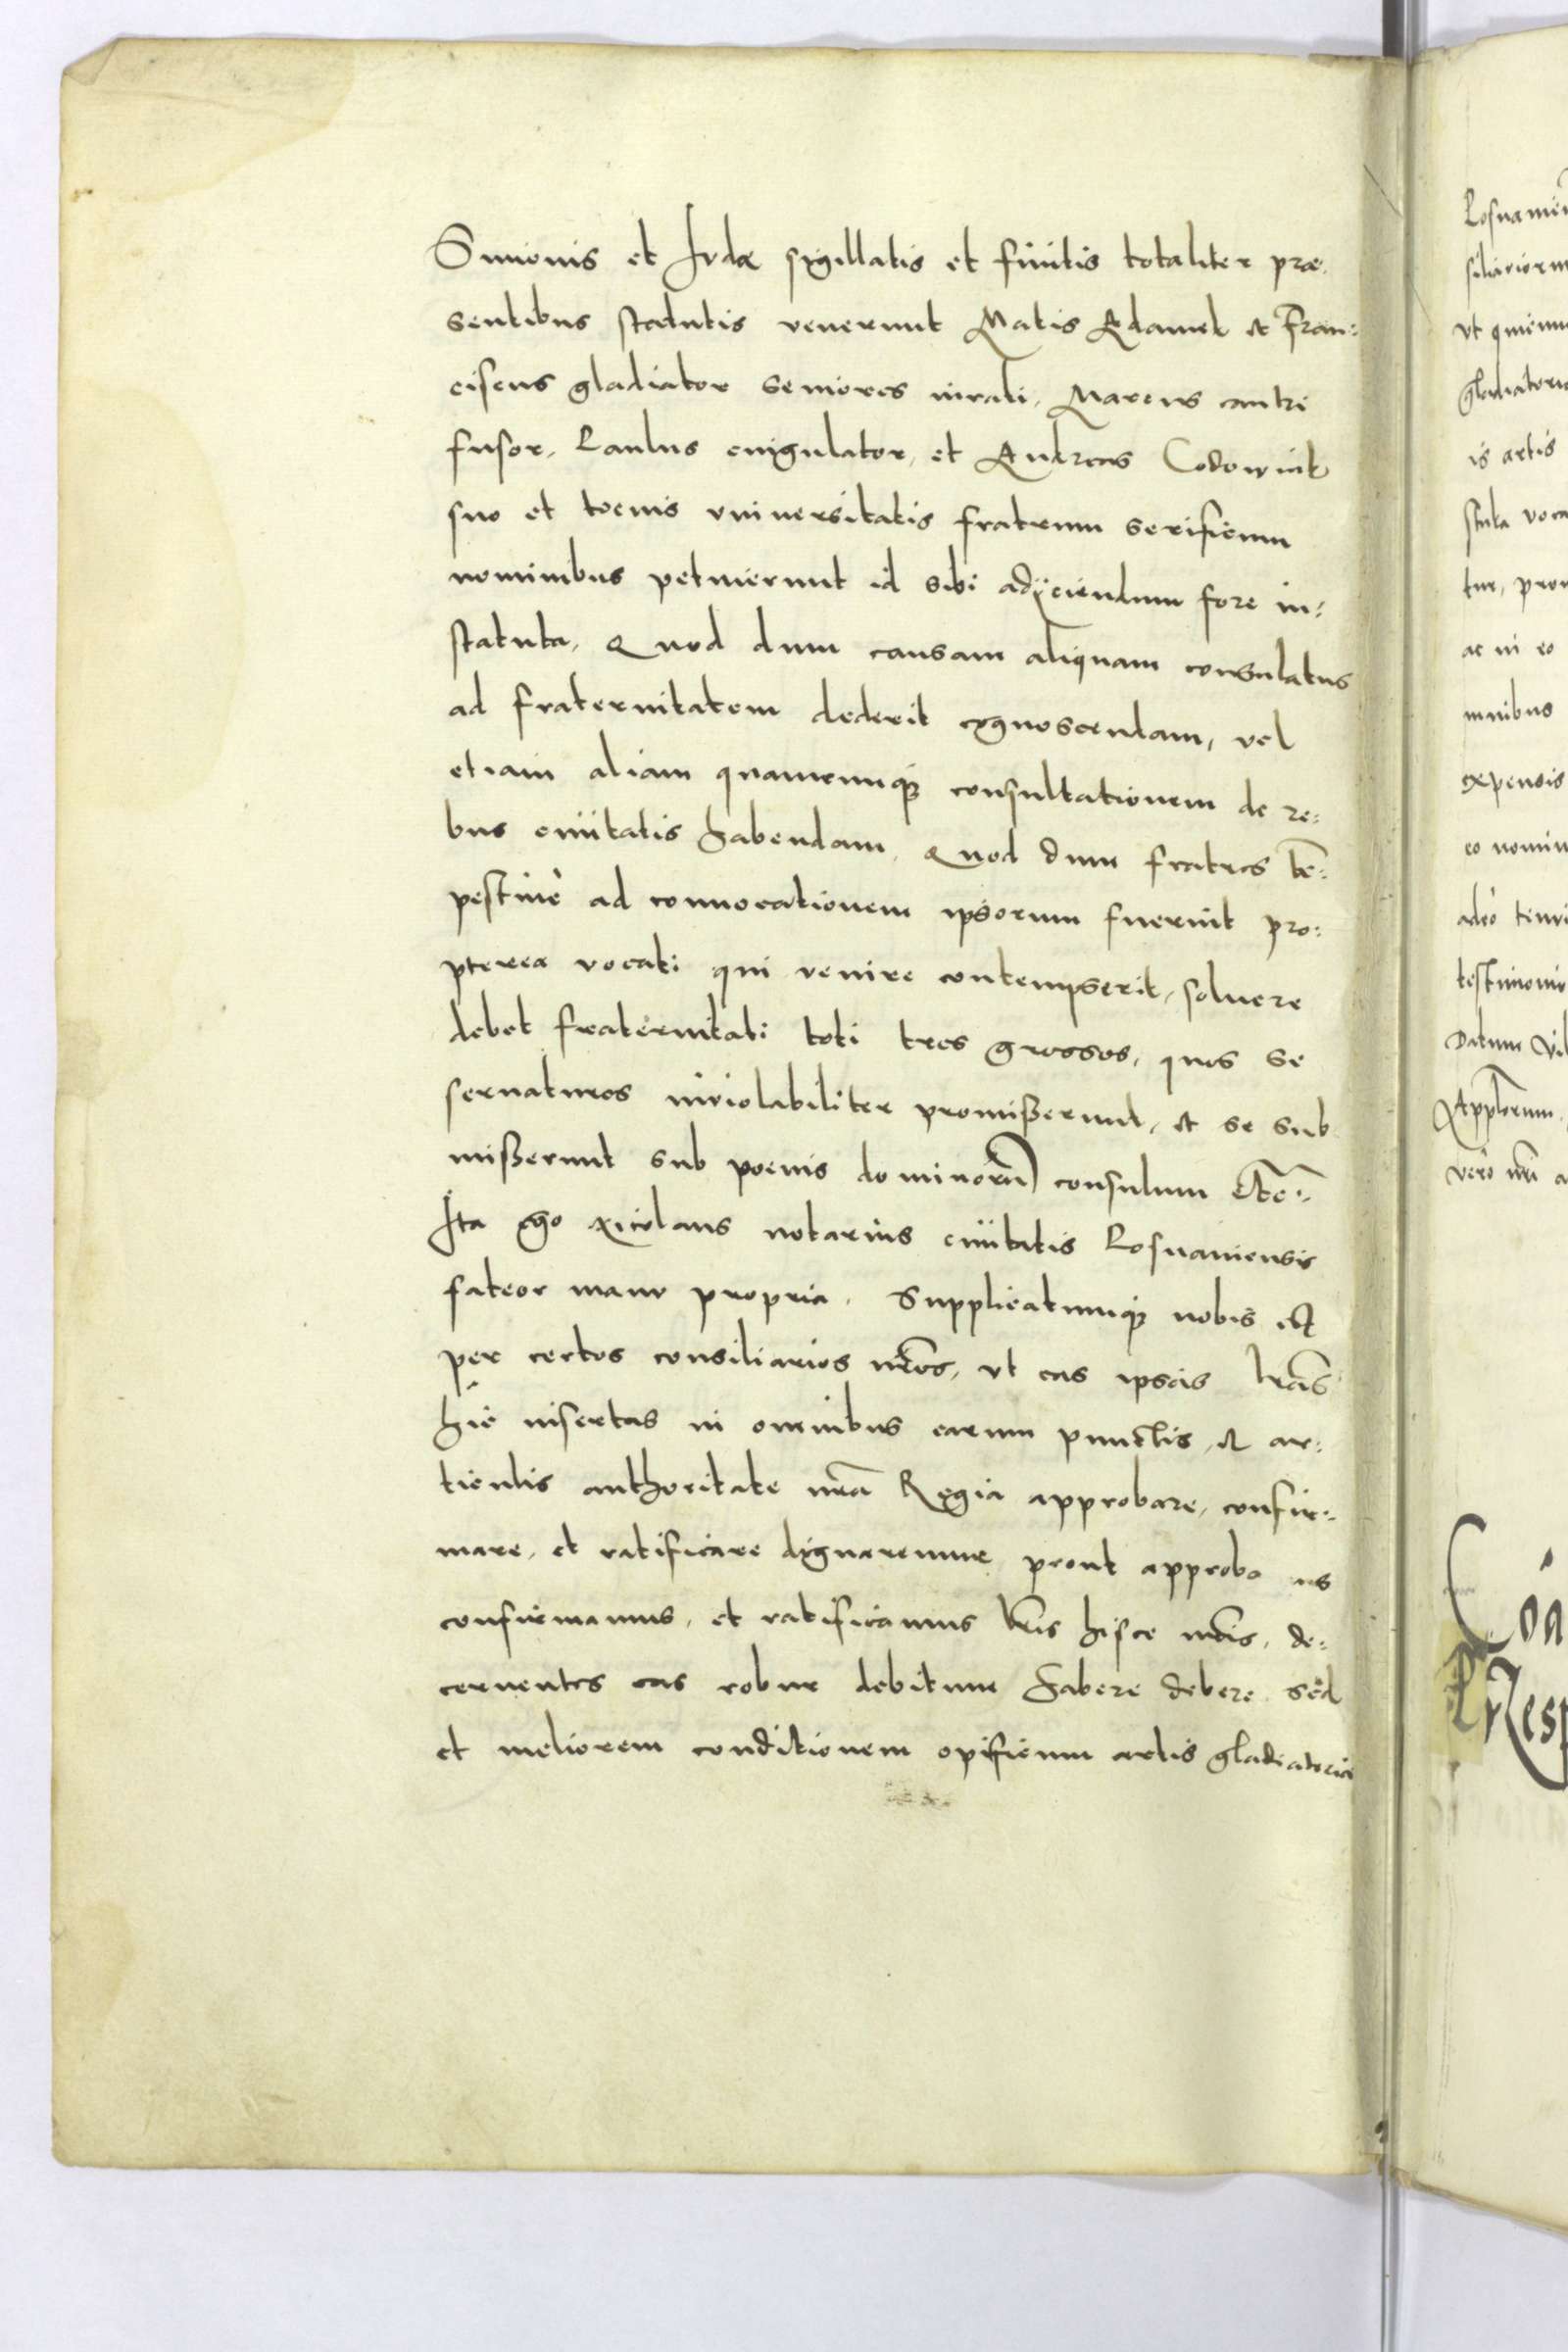 Simonis et Iudæ sigillatis et finitis totaliter præ
sentibus statutis venerunt Matis Adamek et Fran:
ciscus gladiator seniores iurati, Marcus cantri
fusor, Paulus cingulator, et Andreas Codownik
suo et tocius vniuersitatis fratrum serificum
nominibus petiuerunt id sibi adijciendum fore in:
statuta, Quod dum causam aliquam consulatus
ad fraternitatem dederit cognoscendam, vel
etiam aliam quamcunq consultationem de re:
bus ciuitatis habendam, Quod dum fratres te:
pestiue ad conuocationem ipsorum fuerint pro:
pterea vocati qui venire contempserit, soluere
debet fraternitati toti tres grossos, quos se
seruaturos inuiolabiliter promißerunt, et se sub
mißerunt sub poenis dominorū consulum etc:
Ita ego Nicolaus notarius ciuitatis Posnaniensis
fateor manu propria. Supplicatumq nobis est
per certos consiliarios nros, vt eas ipsas lras
hic insertas in omnibus earum punctis, et ar:
ticulis authoritate nra Regia approbare, confir:
mare, et ratificare dignaremur prout approba us
confirmamus, et ratificamus lris hisce nris, de:
cernentes eas robur debitum habere debere sed
et meliorem conditionem opificum artis gladiatoria
Posnanien
siliariorum
vt quienu
gladiatoria
is artis
stuta voca
tur, prou
ac in eo
mnibus
expensis
eo nomin
adeo
testimonio
Datum Vil
Applorum
vero nri a
Coa
Resp